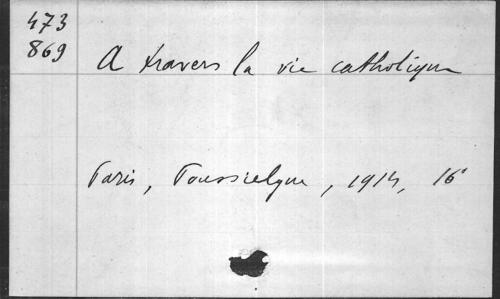 473
869
A travers la vie catholique
Paris, Poussielgue, 1914, 16°